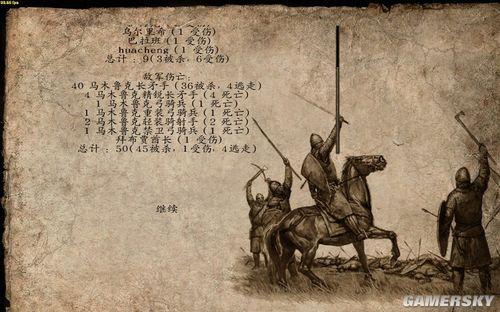 59.66 fps
乌尔里希(1 受伤)
巴拉班(1 受伤)
huacheng(1 受伤)
总计：9(3被杀,6受伤)
敌军伤亡:
40 马木鲁克长矛手(36被杀,4逃走)
4 马木鲁克精锐长矛手(4 死亡)
1 马木鲁克弓骑兵(1 死亡)
1 马木鲁克重装弓骑兵(1 死亡)
2 马木鲁克轻装骑射手(2 死亡)
1 马木鲁克禁卫弓骑兵(1 死亡)
拜布贾酋长(1 受伤)
总计：50(45被杀,1受伤,4逃走)
继续
GAMERSKY